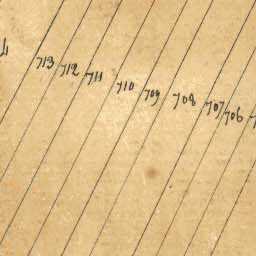 713 712 711 710 709 708 707 706